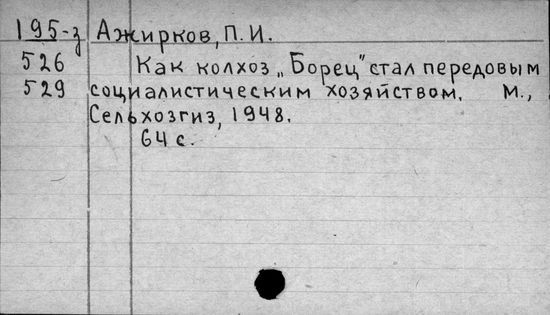 195-з Ажирков, П. И.
526 Как колхоз „Борец" стал передовым
529 социалистическим хозяйством. М.,
Сельхозгиз, 1948.
64 с.